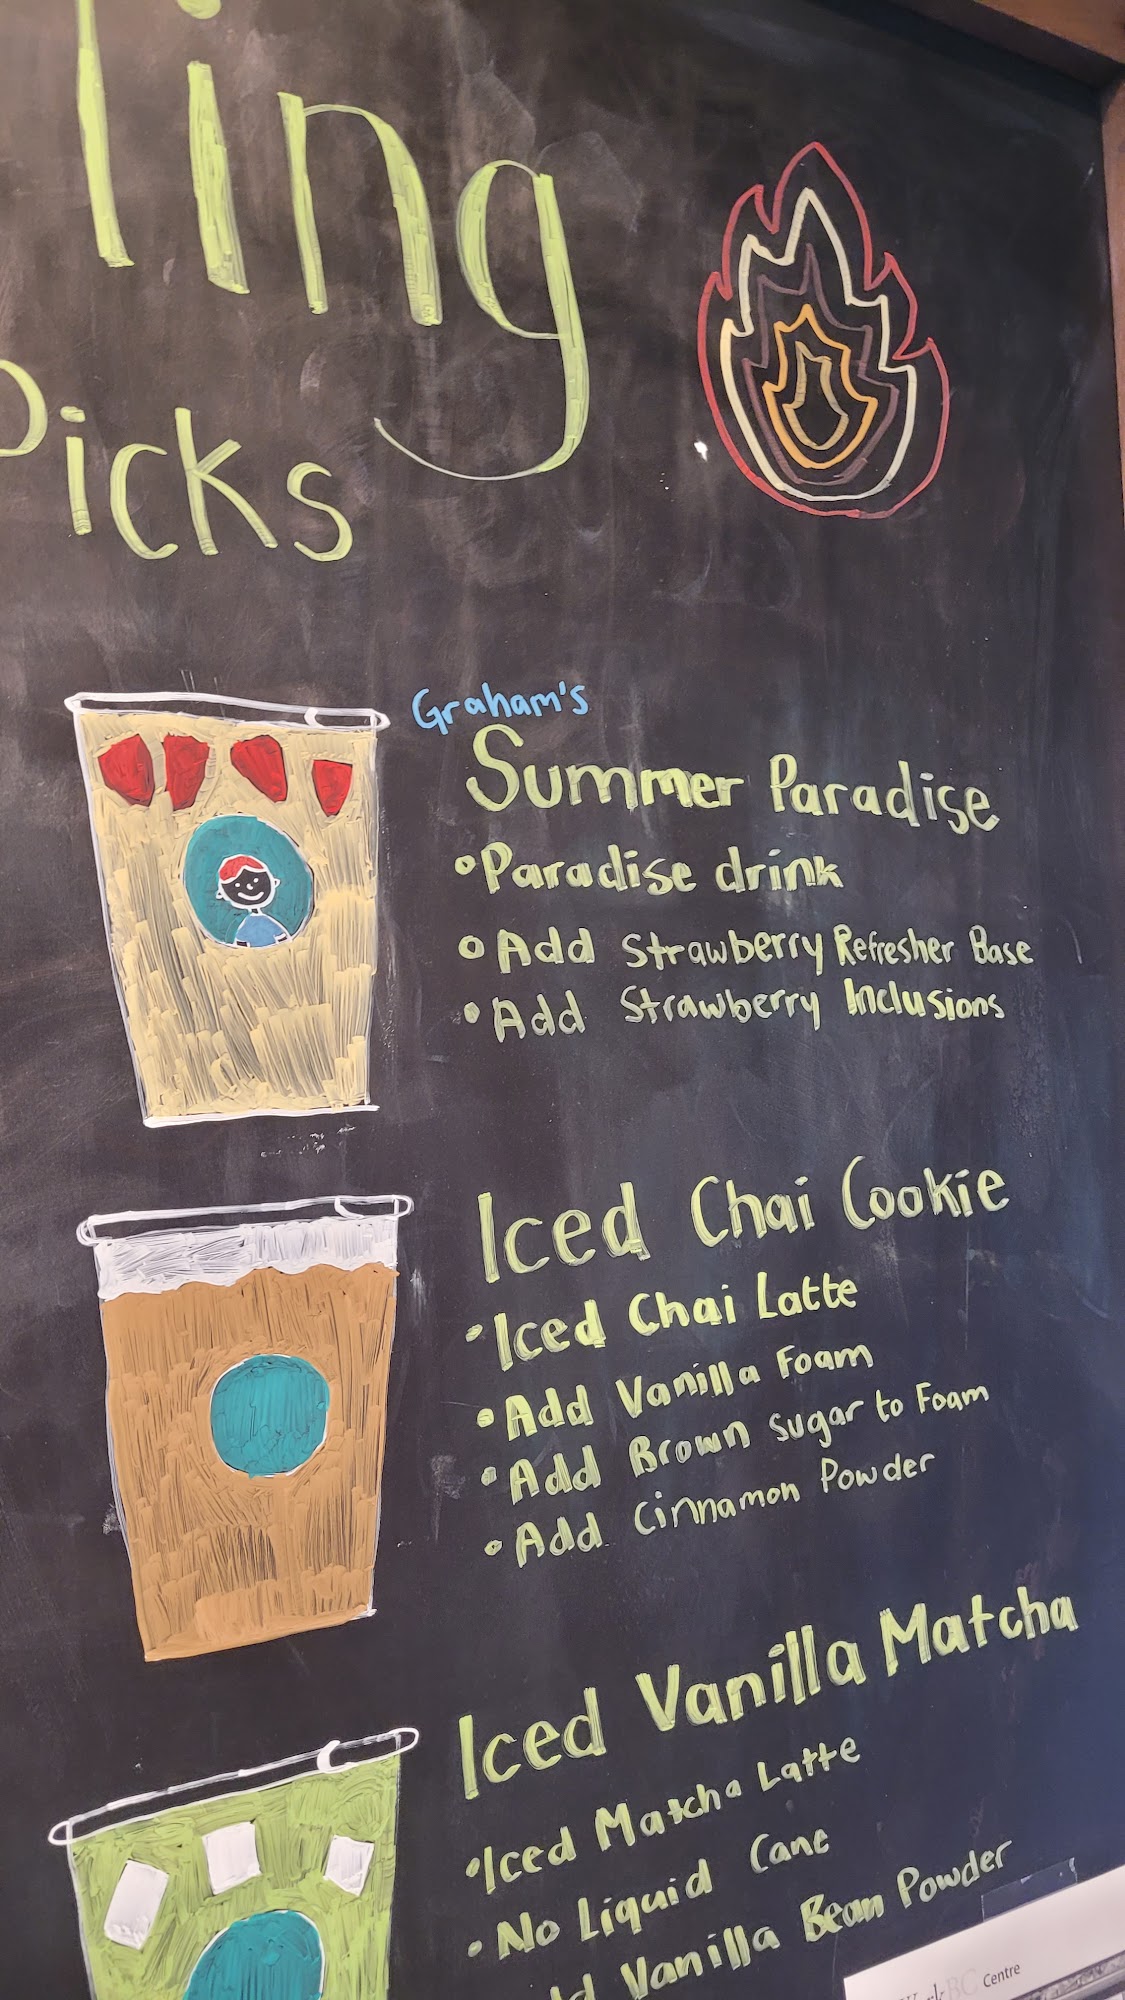 ling
Picks
Graham's
Summer Paradise
• Paradise drink
• Add Strawberry Refresher Base
• Add Strawberry Inclusions
Iced Chai Cookie
• Iced Chai Latte
• Add Vanilla Foam
• Add Brown Sugar to Foam
• Add Cinnamon Powder
Iced Vanilla Matcha
• Iced Matcha Latte
• No Liquid Cane
Vanilla Bean Powder
WorkBC Centre